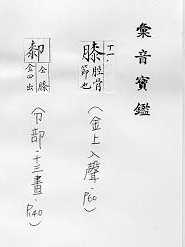 彙音寶鑑
十一.
膝 脛骨節也
(金上入聲.P60)
厀 仝膝 仝四出
(卩部.十三畫.P140)